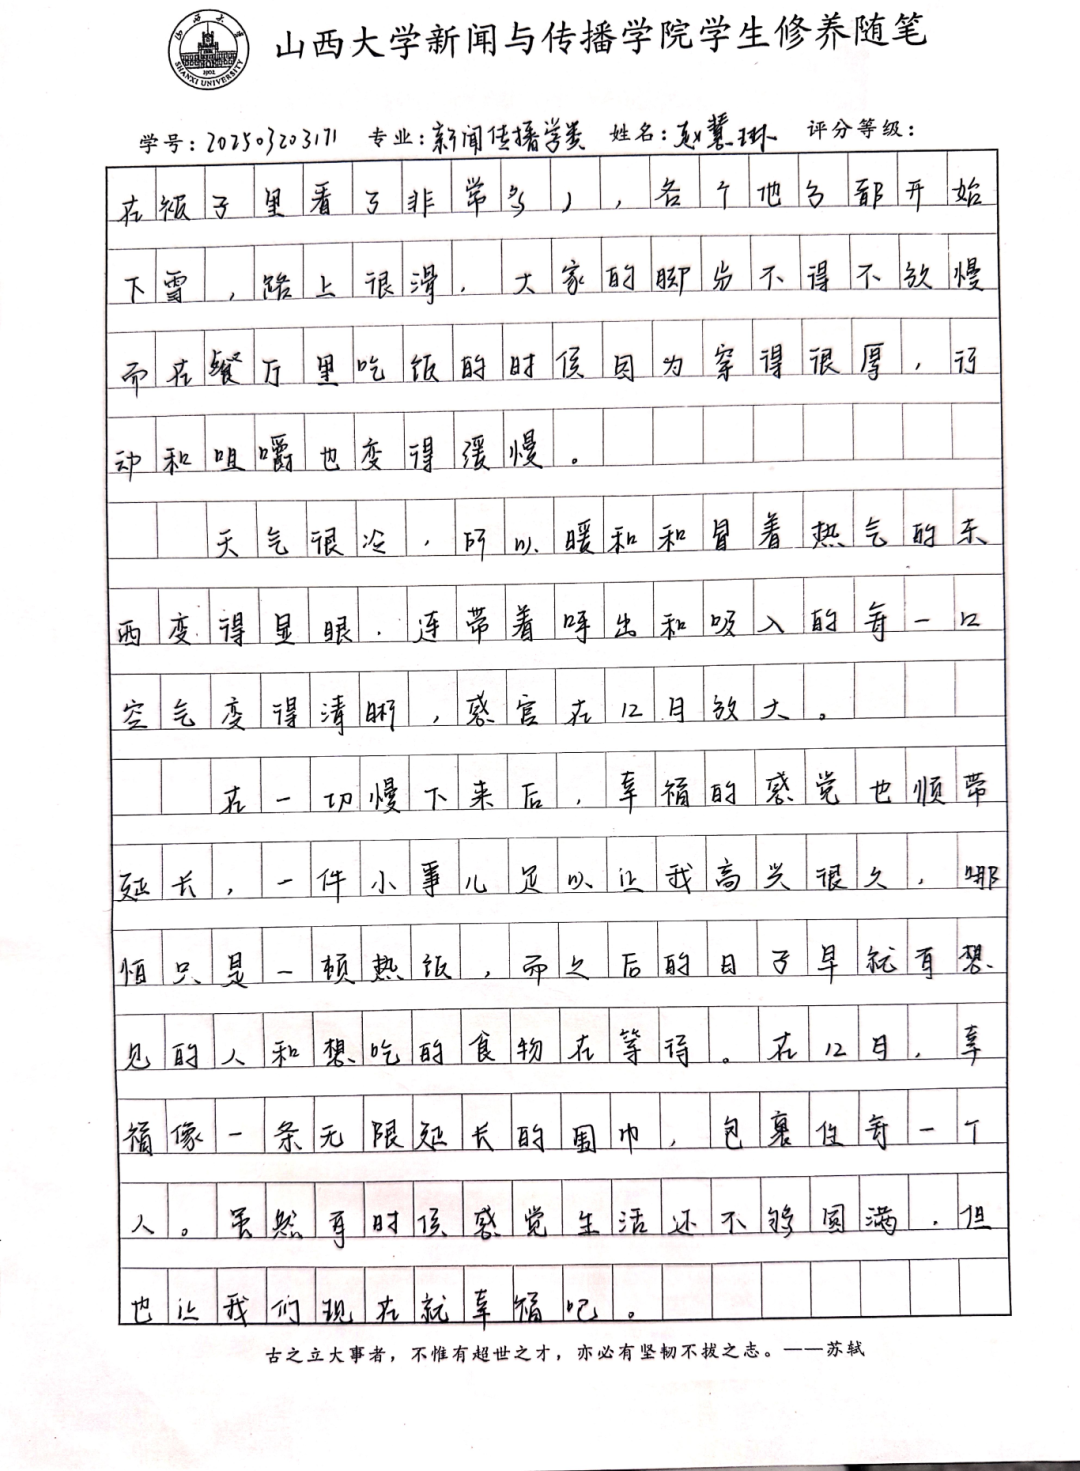 山西大学新闻与传播学院学生修养随笔
SHANXI UNIVERSITY
1902
学号：202503203171 专业：新闻传播学类 姓名：赵慧琳 评分等级：
在被子里看了非常多），各个地方都开始
下雪，路上很滑，大家的脚步不得不放慢
而在餐厅里吃饭的时候因为穿得很厚，行
动和咀嚼也变得缓慢。
天气很冷，所以暖和和冒着热气的东
西变得显眼，连带着呼出和吸入的每一口
空气变得清晰，感官在12月放大。
在一切慢下来后，幸福的感觉也顺带
延长，一件小事儿足以让我高兴很久，哪
怕只是一顿热饭，而之后的日子早就有想
见的人和想吃的食物在等待。在12月，幸
福像一条无限延长的围巾，包裹住每一个
人。虽然有时候感觉生活还不够圆满，但
也让我们现在就幸福吧。
古之立大事者，不惟有超世之才，亦必有坚韧不拔之志。——苏轼